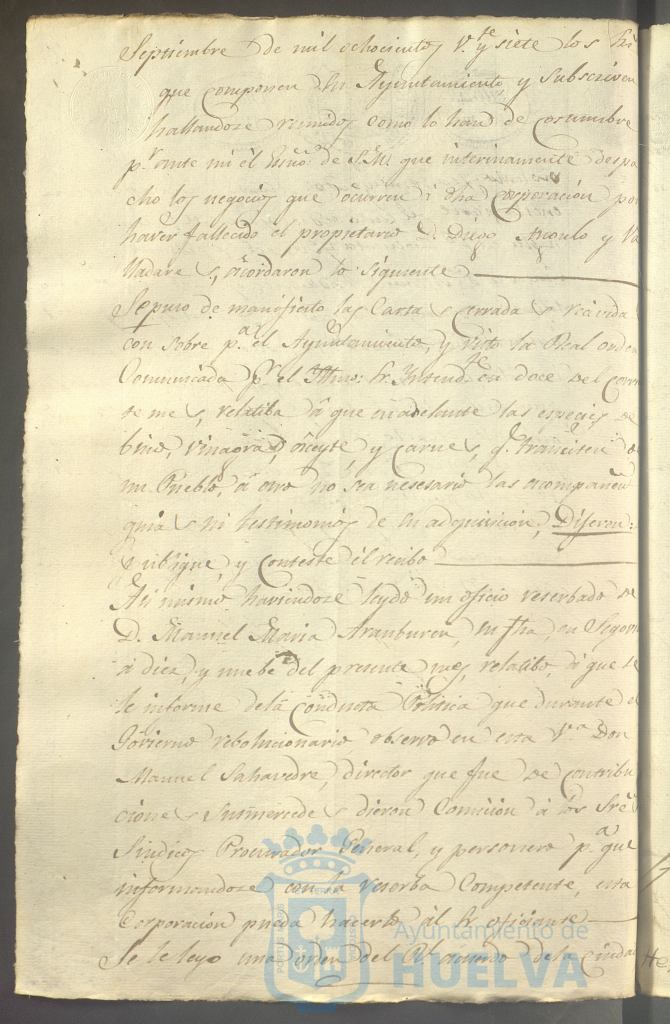 Septiembre de mil ochocientos v.te y siete los Sres
que componen su Ayuntamiento, y subscriven
hallandose reunidos como lo han de costumbre
p.r ante mi el Essno de S.M. que interinamente despa
cho los negocios que ocurren á dha Corporación por
haver fallecido el propietario D. Diego Angulo y Va
lladares, acordaron lo siguiente
Se puso de manifiesto las Cartas cerradas recividas
con sobre p.a el Ayuntamiento, y visto la Real orden
Comunicada p.r el Yltmo: Sr. Yntend.te en doce del corr
te mes, relatiba á que en adelante las especies de
bino, vinagre, aceyte, y carnes, q.e transiten de
un Pueblo, á otro no sea nesesario las acompañen
guias ni testimonios de su adquisicion, Dijeron:
Publique, y conteste el recibo
Asi mismo haviendose leydo un oficio reserbado de
D. Manuel Maria Aranburen, su fha, en
á diez, y nuebe del presente mes, relatibo, á que se
le informe dela conducta Politica que durante el
Govierno rebolucionario, observó en esta V.a Don
Manuel Sahavedre, director que fue de contribu
ciones sus mercedes dieron Comición á los Sres
Sindicos Procurador General, y personero p.a que
informandose con la reserba Competente, esta
Corporación pueda hacerlo al Sr. oficiante
Se le leyo una orden del R.l acuerdo dela Ciudad
Ayuntamiento de
HUELVA